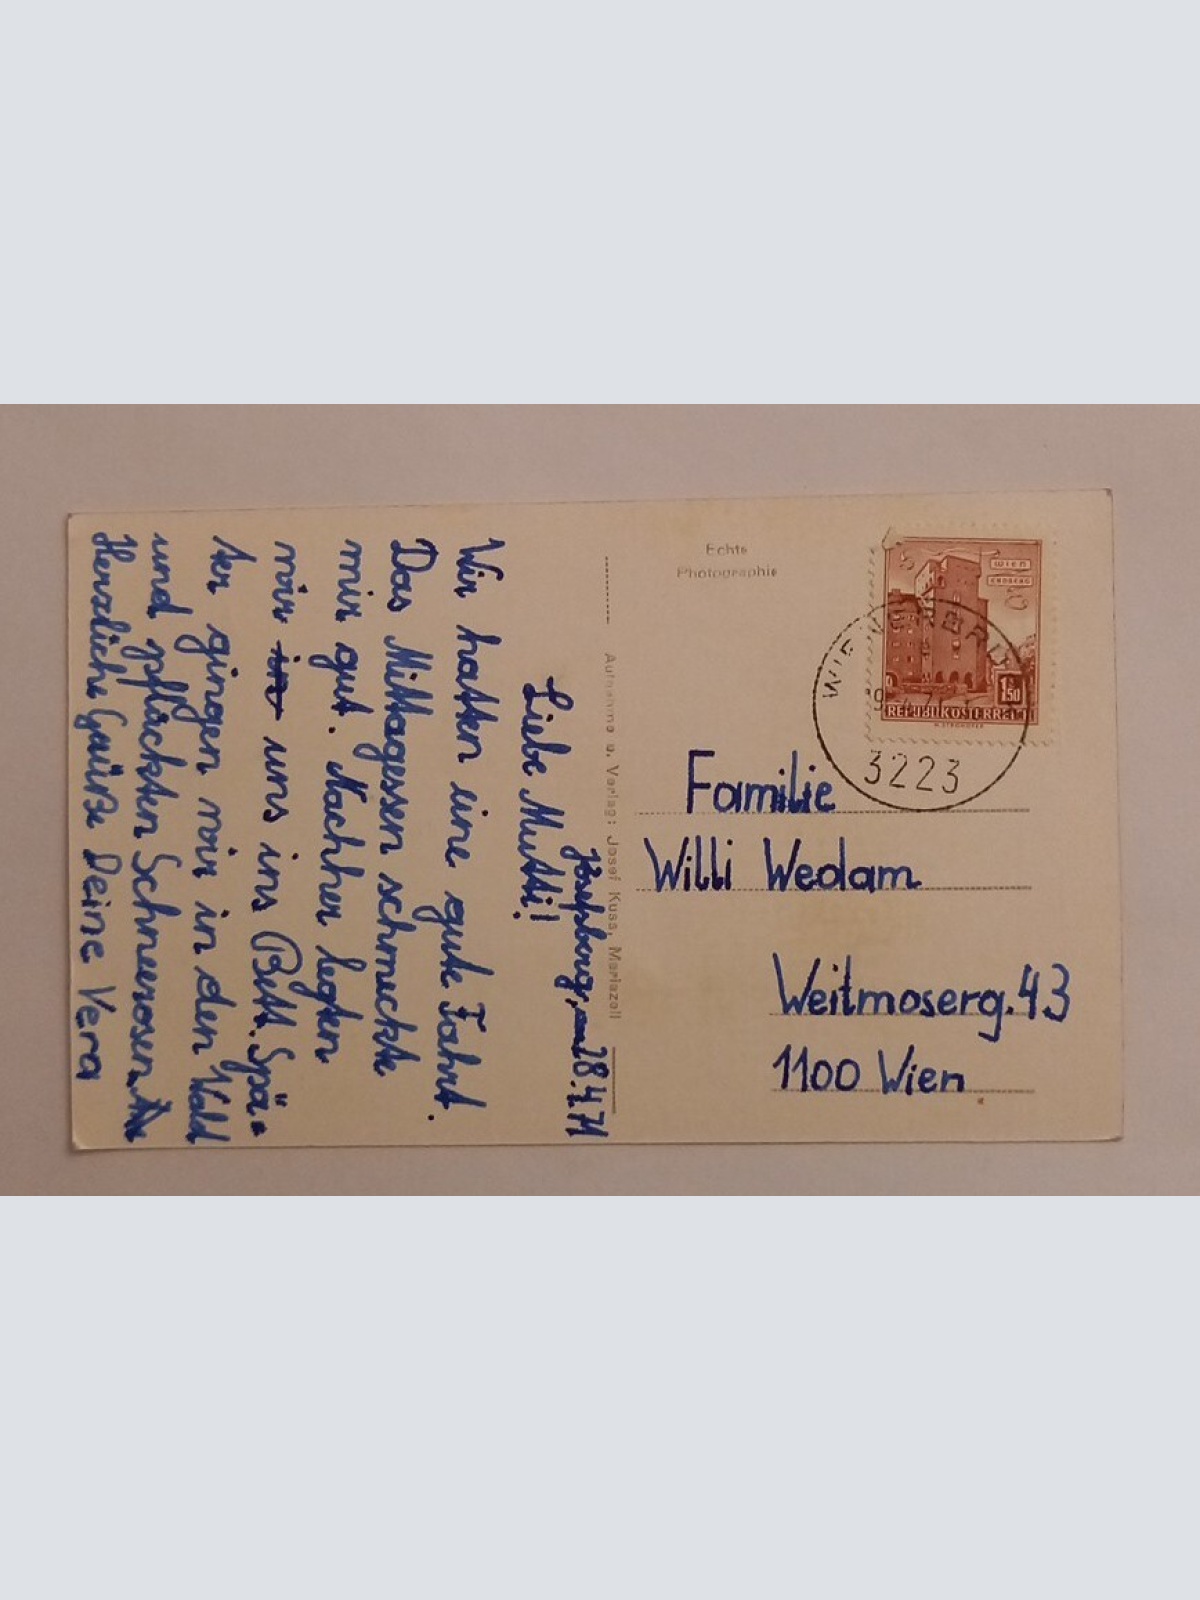 Josefsberg, am 28.4.71
Liebe Mutti!
Wir hatten eine gute Fahrt.
Das Mittagessen schmeckte
mir gut. Nachher legten
wir uns ins Bett. Spä=
ter gingen wir in den Wald
und pflückten Schneerosen.
Herzliche Grüße Deine Vera
Aufnahme u. Verlag: Josef Kuss, Mariazell
Echte
Photographie
WIEN
ERDBERG
1.50
REPUBLIK ÖSTERREICH
3223
Familie
Willi Wedam
Weitmoserg. 43
1100 Wien